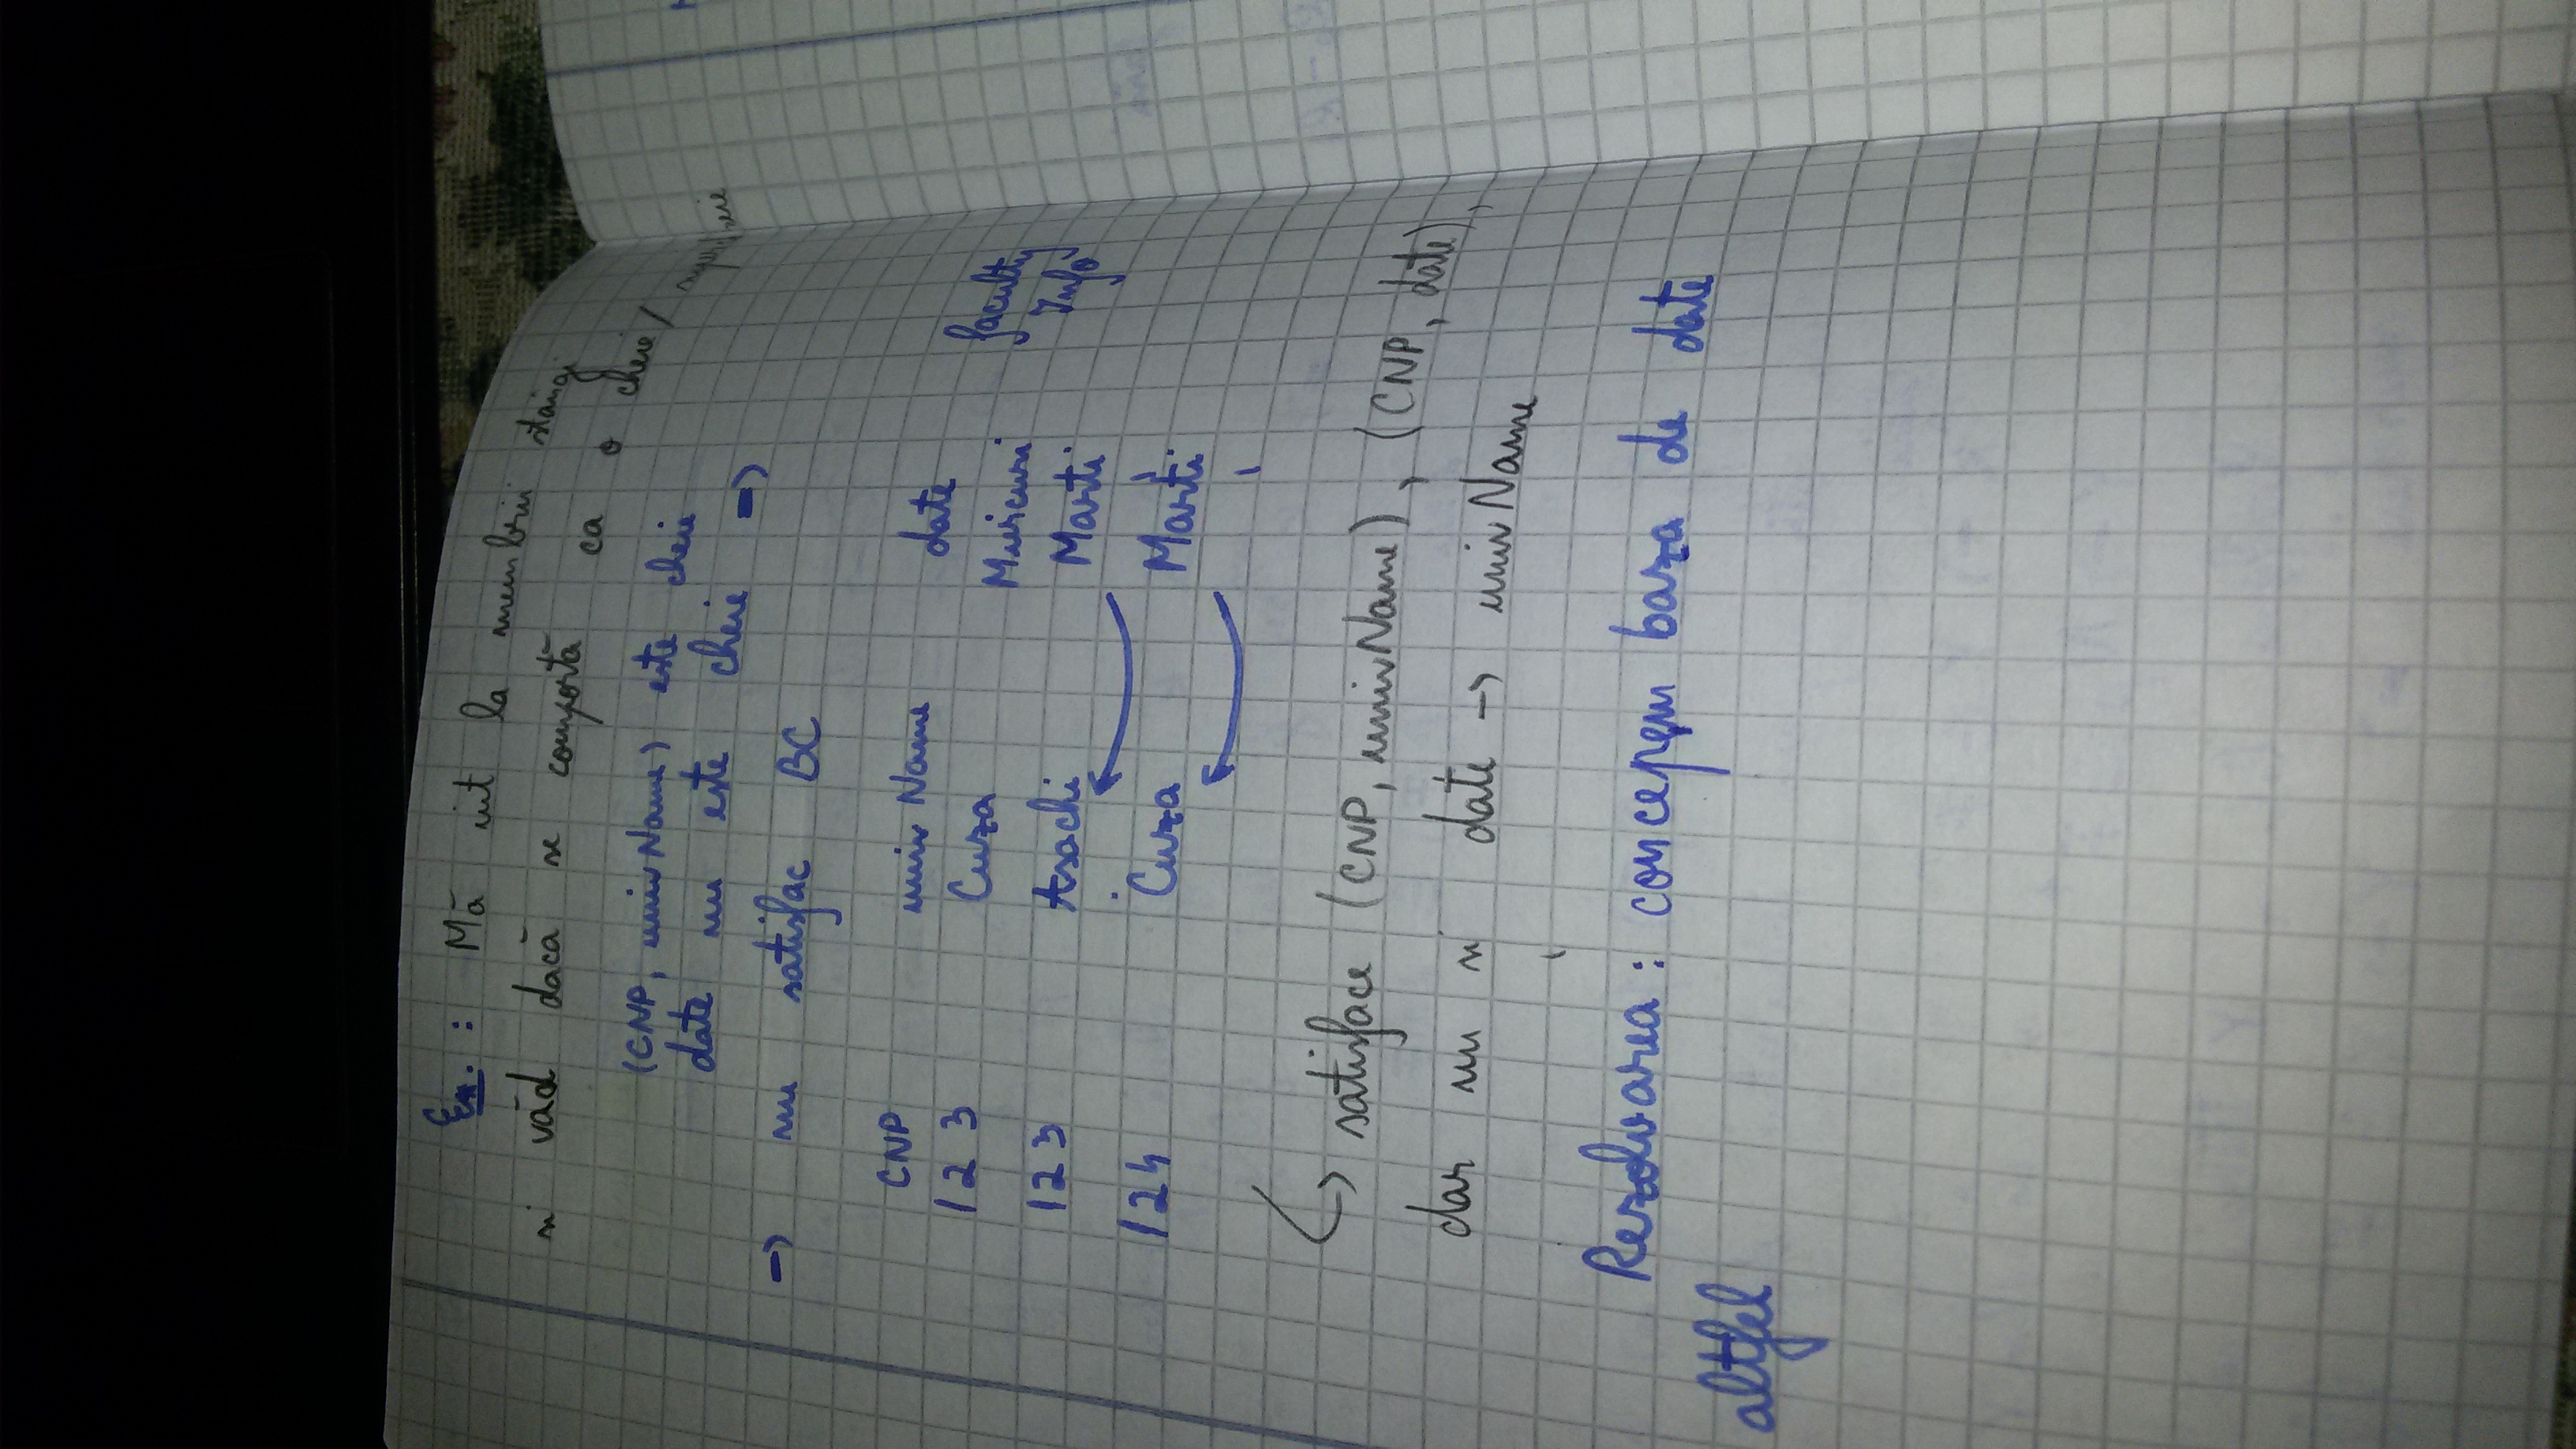 Ex. : Mă uit la membrii stângi
și văd dacă se comportă ca o cheie / supercheie
(CNP, univName) este cheie
date nu este cheie =>
=> nu satisfac BC
CNP univName date faculty
123 Cuza Miercuri Info
123 Asachi Marți
124 Cuza Marți
↳ satisface (CNP, univName), (CNP, date),
dar nu și date -> univName
Rezolvarea : concepem baza de date
altfel